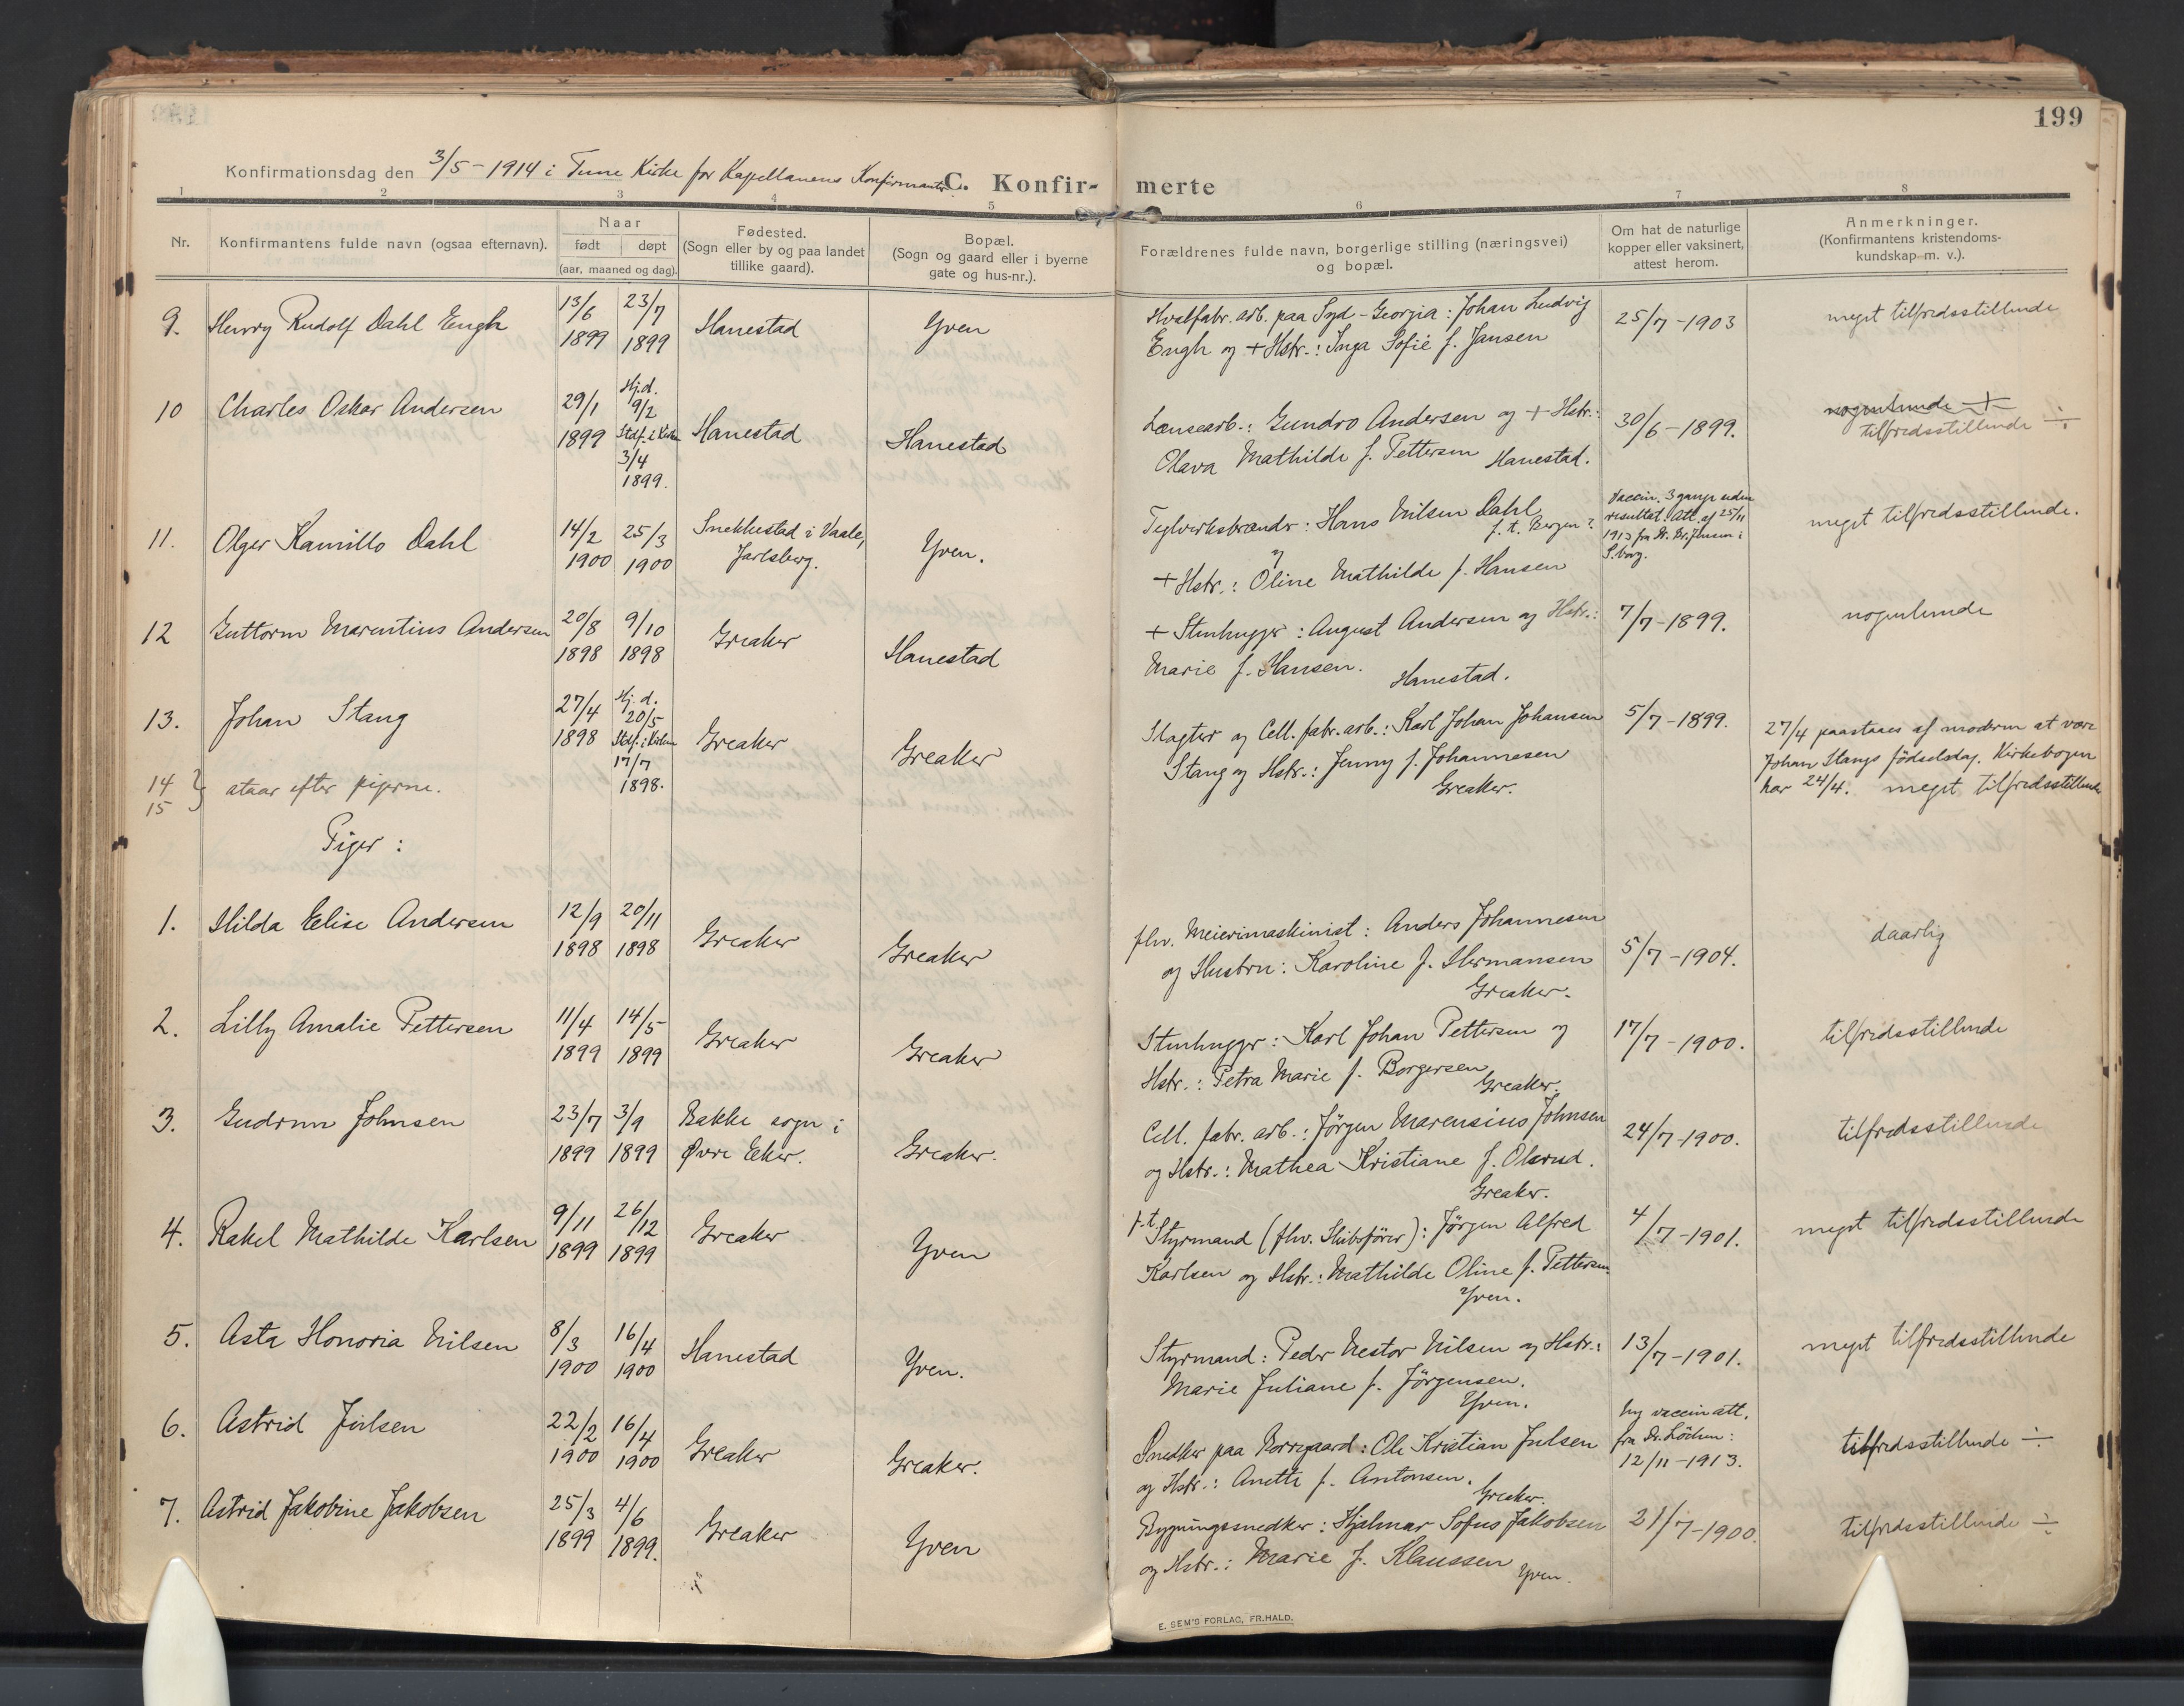 199
Konfirmationsdag den 3/5 - 1914 i Tune Kirke for Kapellanens Konfirmanter C. Konfir- merte
1 2 3 4 5 6 7 8
Nr.
Konfirmantens fulde navn (ogsaa efternavn).
Naar
født døpt
(aar, maaned og dag).
Fødested.
(Sogn eller by og paa landet
tillike gaard).
Bopæl.
(Sogn og gaard eller i byerne
gate og hus-nr.).
Forældrenes fulde navn, borgerlige stilling (næringsvei)
og bopæl.
Om hat de naturlige
kopper eller vaksinert,
attest herom.
Anmerkninger.
(Konfirmantens kristendoms-
kundskap m. v.).
9. Henry Rudolf Dahl Engh
13/6 1899
23/7 1899
Hanestad
Yven
Hvalfabr. arb. paa Syd-Georgia: Johan Ludvig
Engh og + Hstr.: Inga Sofie f. Jansen
25/7 - 1903
meget tilfredsstillende
10 Charles Oskar Andersen
29/1
1899
Hj.d.
9/2
Stdf. i Kirken
3/4
1899.
Hanestad
Hanestad
Lensearb.: Gundro Andersen og + Hstr.:
Olava Mathilde f. Pettersen Hanestad.
30/6 - 1899.
nogenlunde +
tilfredsstillende ÷
11. Olger Kamillo Dahl
14/2
1900
25/3
1900
Snekkestad i Vaale,
Jarlsberg.
Yven.
Teglverksbrænder: Hans Nilsen Dahl
f. t. Bergen?
og
+ Hstr.: Oline Mathilde f. Hansen
Vaccin. 3 gange uden
resultat. Att. af 25/11
1913 fra Dr. Br. Jensen i
S.borg.
meget tilfredsstillende.
12 Guttorm Marentius Andersen
20/8
1898
9/10
1898
Greaker
Hanestad
+ Stenhugger: August Andersen og Hstr.:
Marie f. Hansen.
Hanestad.
7/7 - 1899.
nogenlunde
13. Johan Stang
27/4
1898
Hj. d.
20/5
Stdf. i Kirken
17/7
1898.
Greaker
Greaker
Slagter og Cell. fabr. arb.: Karl Johan Johansen
Stang og Hstr.: Jenny f. Johannesen
Greaker.
5/7 - 1899.
27/4 paastaaes af moderen at være
Johan Stangs fødselsdag. Kirkebogen
har 24/4. meget tilfredsstillende
14
15 } staar efter pigerne.
Piger:
1. Hilda Elise Andersen
12/9
1898
20/11
1898
Greaker
Greaker
fhv. Meierimaskinist: Anders Johannesen
og Hustru: Karoline f. Hermansen
Greaker.
5/7 - 1904.
daarlig
2. Lilly Amalie Pettersen
11/4
1899
14/5
1899
Greaker
Greaker
Stenhugger: Karl Johan Pettersen og
Hstr.: Petra Marie f. Borgersen
Greaker.
17/7 - 1900.
tilfredsstillende
3. Gudrun Johnsen
23/7
1899
3/9
1899
Bakke sogn i
Øvre Eker.
Greaker.
Cell. fabr. arb.: Jørgen Marensius Johnsen
og Hstr.: Mathea Kristiane f. Olsrud.
Greaker.
24/7 - 1900.
tilfredsstillende
4. Rakel Mathilde Karlsen
9/11
1899
26/12
1899
Greaker
Yven
f.t. Styrmand (fhv. Skibsfører): Jørgen Alfred
Karlsen og Hstr.: Mathilde Oline f. Pettersen
Yven.
4/7 - 1901.
meget tilfredsstillende
5. Asta Honoria Nilsen
8/3
1900
16/4
1900
Hanestad
Yven.
Styrmand: Peder Nestor Nilsen og Hstr.:
Marie Juliane f. Jörgensen.
Yven.
13/7 - 1901.
meget tilfredsstillende
6. Astrid Julsen
22/2
1900
16/4
1900
Greaker
Greaker.
Snedker paa Borregaard: Ole Kristian Julsen
og Hstr.: Anette f. Antonsen.
Greaker.
Ny vaccin att.
fra Dr. Löchen:
12/11 - 1913.
tilfredsstillende ÷
7. Astrid Jakobine Jakobsen
25/3
1899
4/6
1899.
Greaker
Yven
Bygningssnedker: Hjalmar Sofus Jakobsen
og Hstr.: Marie f. Klaussen
Yven.
21/7 - 1900.
tilfredsstillende ÷
E. SEM'S FORLAG, FR.HALD.